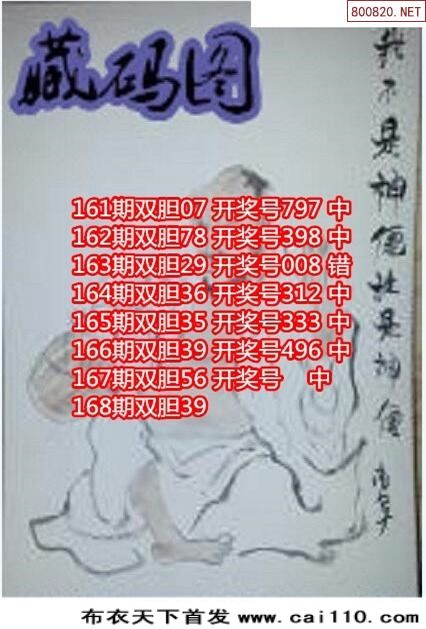 800820.NET
藏码图
我不是神僊谁是神僊
161期双胆07 开奖号797 中
162期双胆78 开奖号398 中
163期双胆29 开奖号008 错
164期双胆36 开奖号312 中
165期双胆35 开奖号333 中
166期双胆39 开奖号496 中
167期双胆56 开奖号 中
168期双胆39
布衣天下首发 www.cai110.com